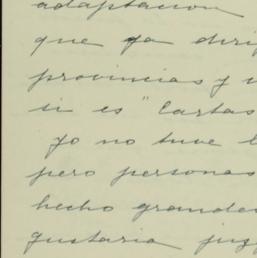 adaptacion
que ya diri
provincias y
ti es "Cartas
yo no tuve l
pero personas
hecho grande
gustaria juz